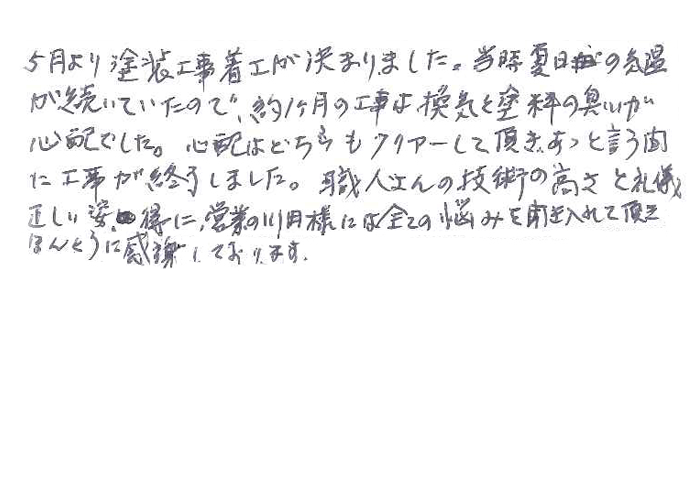 5月より塗装工事着工が決まりました。当時夏日の気温
が続いていたので、約1ヶ月の工事は換気と塗料の臭いが
心配でした。心配はどちらもクリアーして頂き、あっと言う間
に工事が終了しました。職人さんの技術の高さと礼儀
正しい姿、得に、営業の川田様には全ての悩みを聞き入れて頂き
ほんとうに感謝しております。